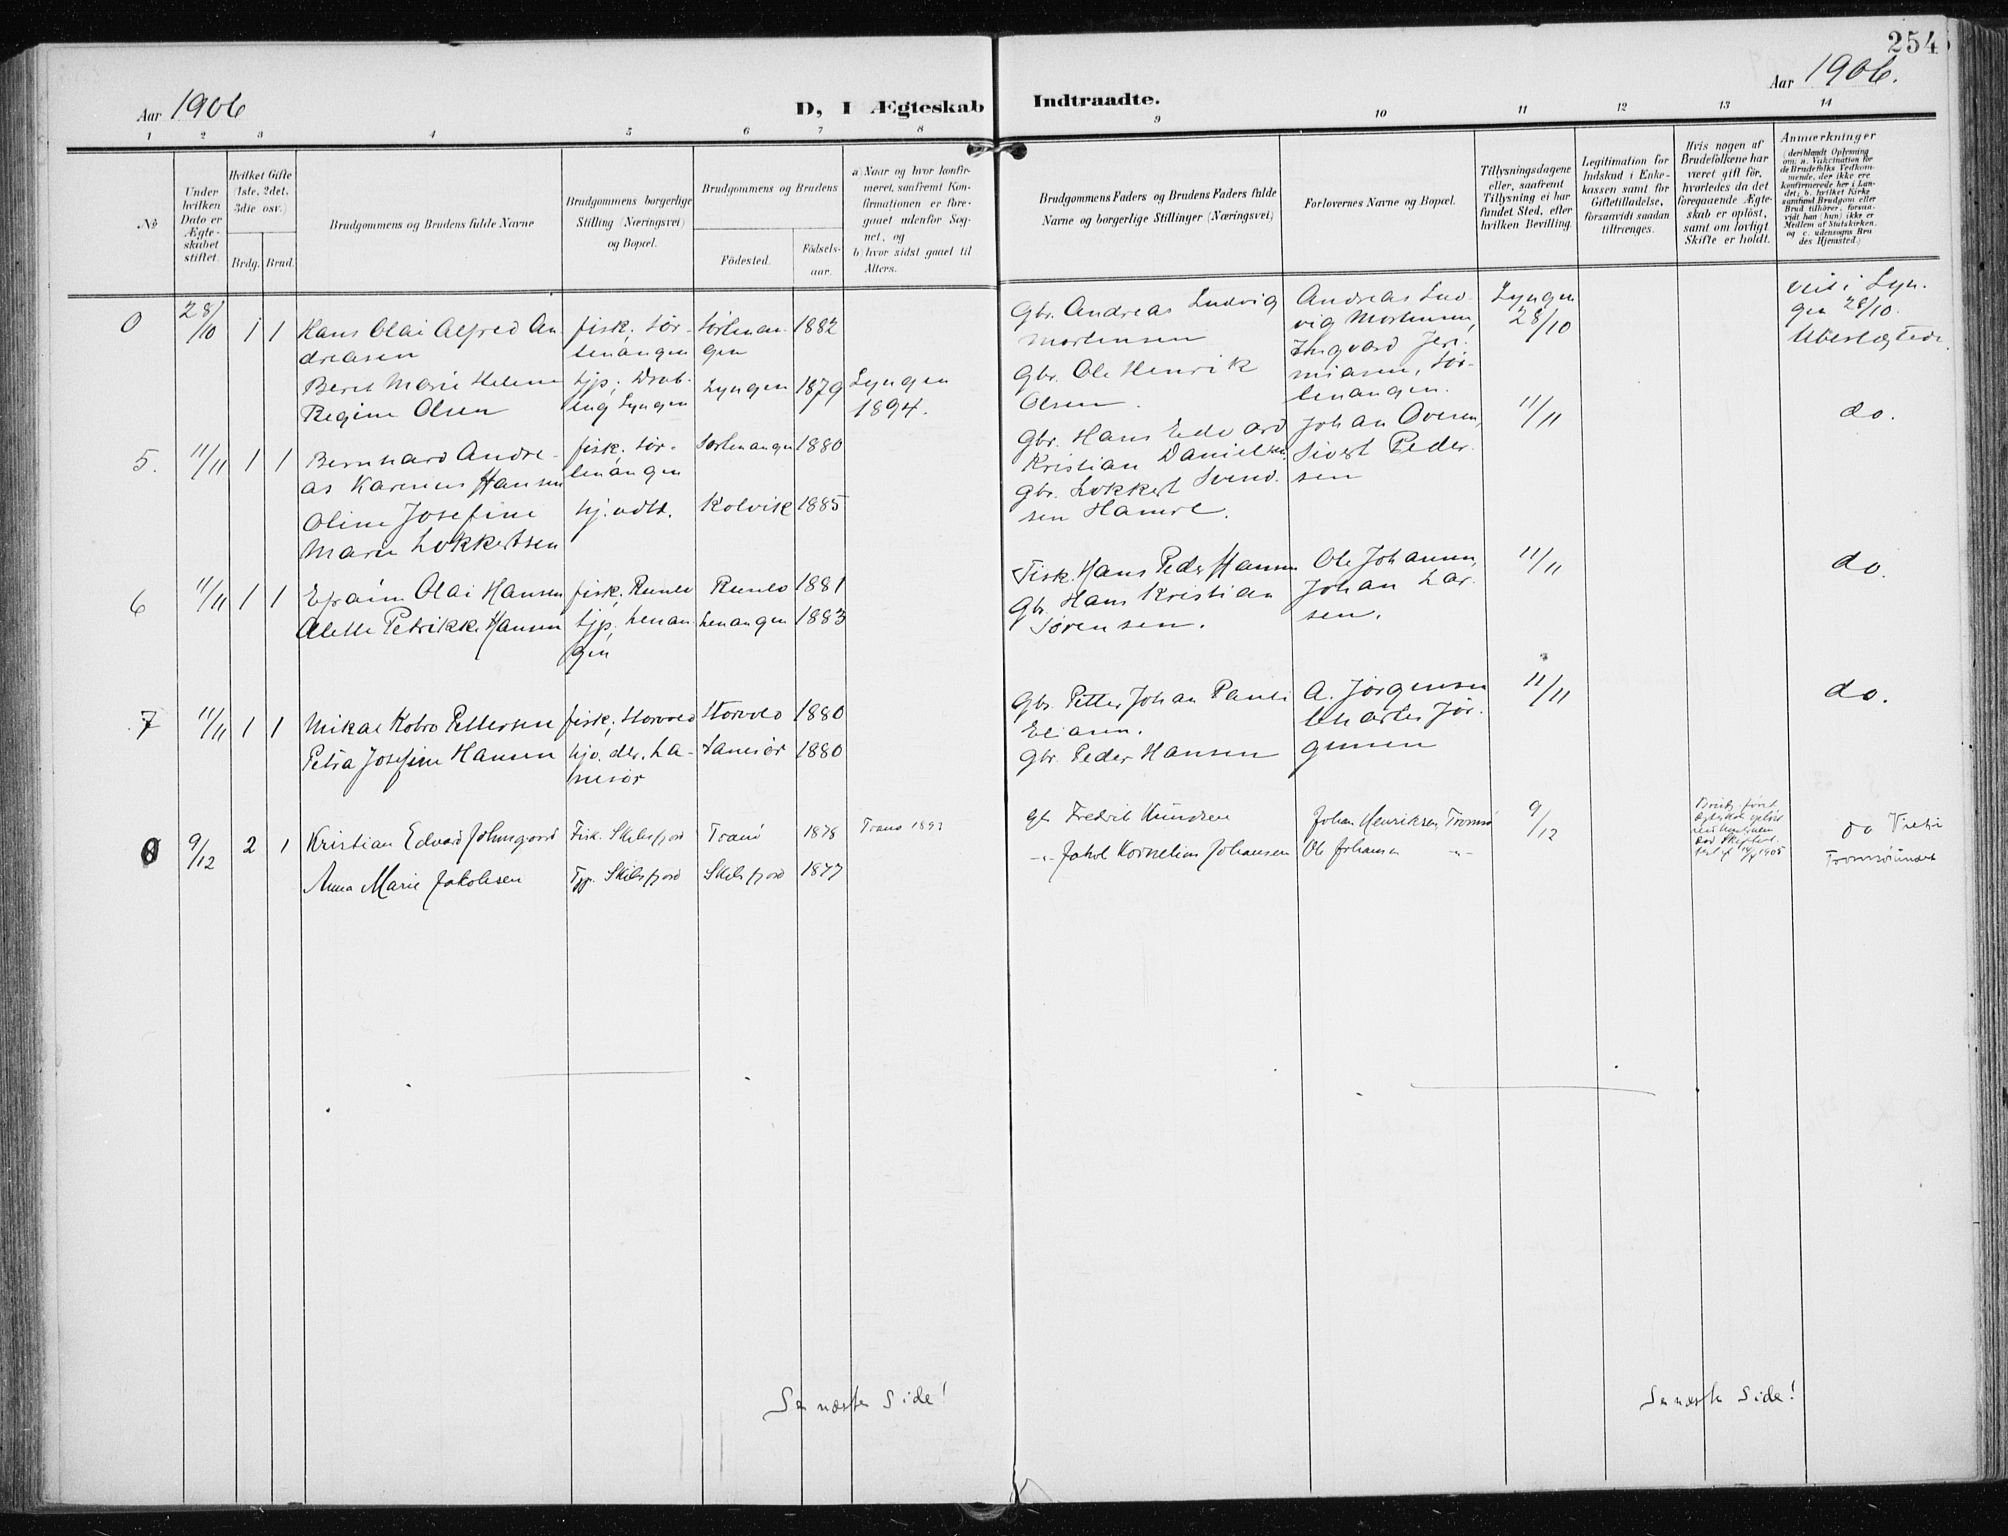 254
Aar 1906
D, I Ægteskab Indtraadte.
Aar 1906.
1 2 3 4 5 6 7 8 9 10 11 12 13 14
№
Under hvilken Dato er Ægteskabet stiftet.
Hvilket Gifte (1ste, 2det, 3die osv.)
Brdg. Brud.
Brudgommens og Brudens fulde Navne
Brudgommens borgerlige Stilling (Næringsvei) og Bopæl.
Brudgommens og Brudens
Födested.
Födsels-aar.
a) Naar og hvor konfirmeret, saafremt Konfirmationen er foregaaet udenfor Sognet, og
b) hvor sidst gaaet til Alters.
Brudgommens Faders og Brudens Faders fulde Navne og borgerlige Stillinger (Næringsvei)
Forlovernes Navne og Bopæl.
Tillysningsdagene eller, saafremt Tillysning ei har fundet Sted, efter hvilken Bevilling.
Legitimation for Indskud i Enkekassen samt for Giftetilladelse, forsaavidt saadan tiltrænges.
Hvis nogen af Brudefolkene har været gift för, hvorledes da det foregaaende Ægteskab er oplöst, samt om lovligt Skifte er holdt.
Anmærkninger (deriblandt Oplysning om: a. Vakcination for de Brudefolks Vedkommende, der ikke ere konfirmerede her i Landet; b. hvilket Kirkesamfund Brudgom eller Brud tilhörer, forsaavidt han (hun) ikke er Medlem af Statskirken, og c. udensogns Brudes Hjemsted.)
0 28/10 1 1 Hans Olai Alfred An- fisk. Sør- Sørlenan- 1882 Gbr. Andreas Ludvig Andreas Lud- Lyngen viet i Lyn-
dreasen lenangen gen Mortensen vig Mortensen, 28/10 gen 28/10.
Berit Marie Helene tjp. Lyngen 1879 Lyngen Gbr. Ole Henrik Ingvard Jere- Ubeslægtede.
Regine Olsen Lyngen 1894. Olsen. miasen, Sør-
lenangen.
5. 11/11 1 1 Bernhard Andre- fisk. Sør- Sørlenangen 1880 Gbr. Hans Edvard Johan Ovesen, 11/11 do.
as Karenus Hansen lenangen Kristian Danielsen Sivert Peder-
Oline Josefine hj. vdt. Kolvik 1885 Gbr. Lokkert Svend- sen
Marie Lokkertsen sen Hamre.
6 11/11 1 1 Efraim Olai Hansen fisk. 1881 Fisk. Hans Peder Hansen Ole Johansen, 11/11 do.
Alette Petrikke Hansen tjp, Lenan Lenangen 1883 Gbr. Hans Kristian Johan Lar-
gen Sørensen. sen.
7 11/11 1 1 Mikal Kobro Pettersen fisk. Storvol Storvol 1880 Gbr. Petter Johan Pauli A. Jørgensen 11/11 do.
Petra Josefine Hansen 1880 Eliasen. Jør-
Gbr. Peder Hansen gensen
8 9/12 2 1 Kristian Edvard Fisk. Skulsfjord Tranø 1878 Tranø 1893 gbr Fredrik Knudsen Johan Henriksen Tromsø 9/12 do
Anna Marie Jakobsen Tjp. Skulsfjord Skulsfjord 1877 -"- Jakob Kornelius Johansen Ole Johansen -"- Tromsøsundet
Se næste Side!
Se næste Side!